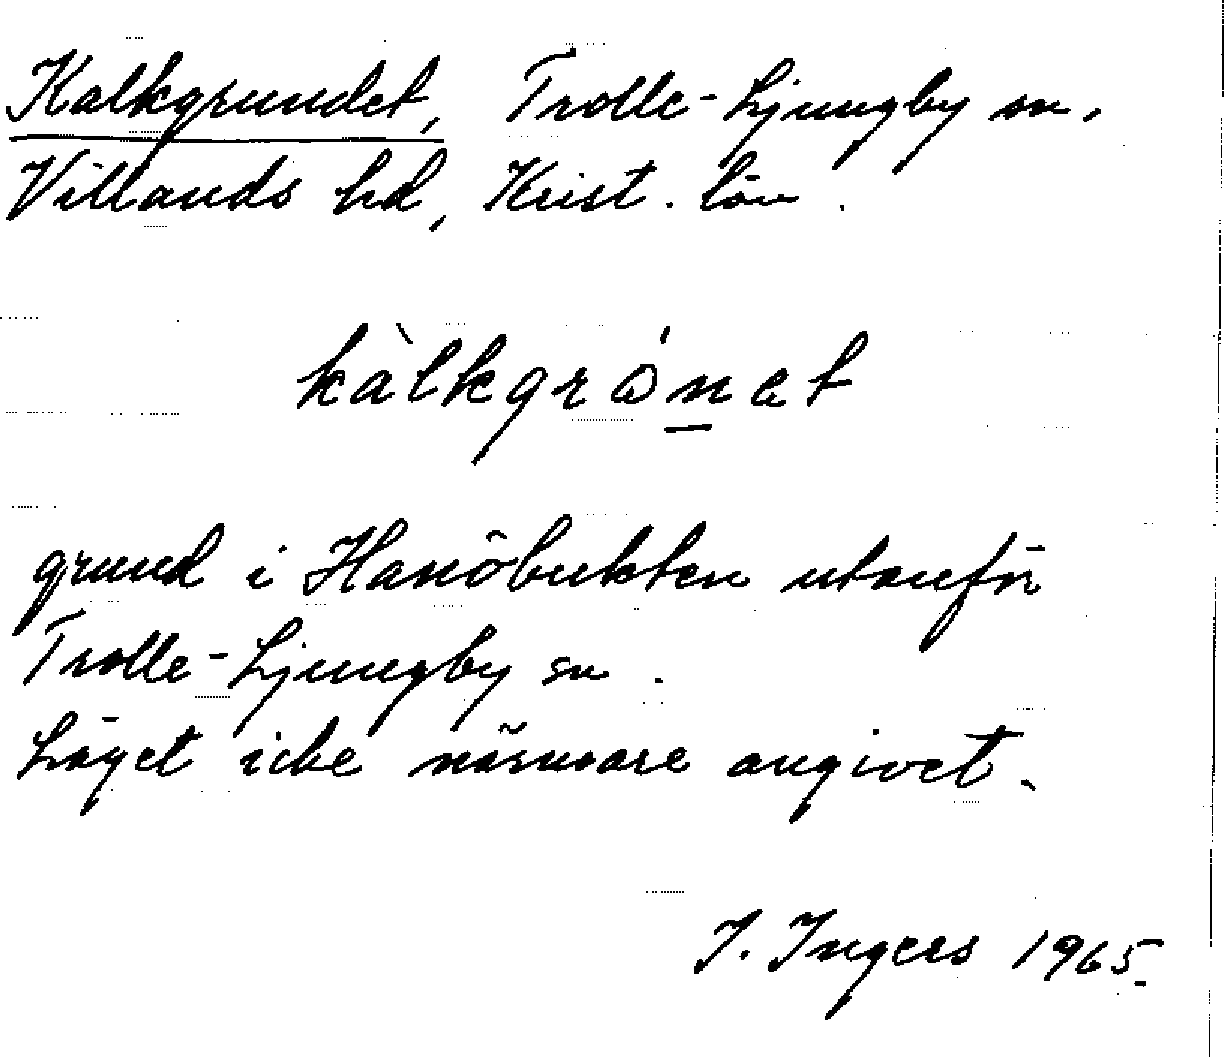 Kalkgrundet, Trolle-Ljungby sn.
Villands hd, Krist. län.
kàlkgrónet
grund i Hanöbukten utanför
Trolle-Ljungby sn.
Läget icke närmare angivet.
I. Ingers 1965.